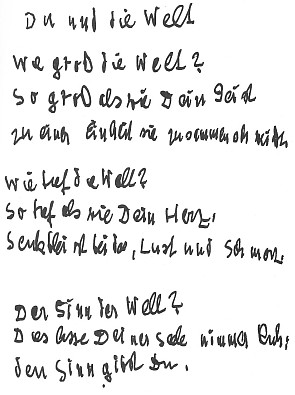 Du und die Welt
Wie groß die Welt?
So groß als sie Dein Geist
zu einer Einheit sie zusammen
Wie tief die Welt?
So tief als sie Dein Herz,
Lust und Schmerz.
Der Sinn der Welt?
Dies lasse Deiner Seele nimmer Ruh:
den Sinn gibst Du.